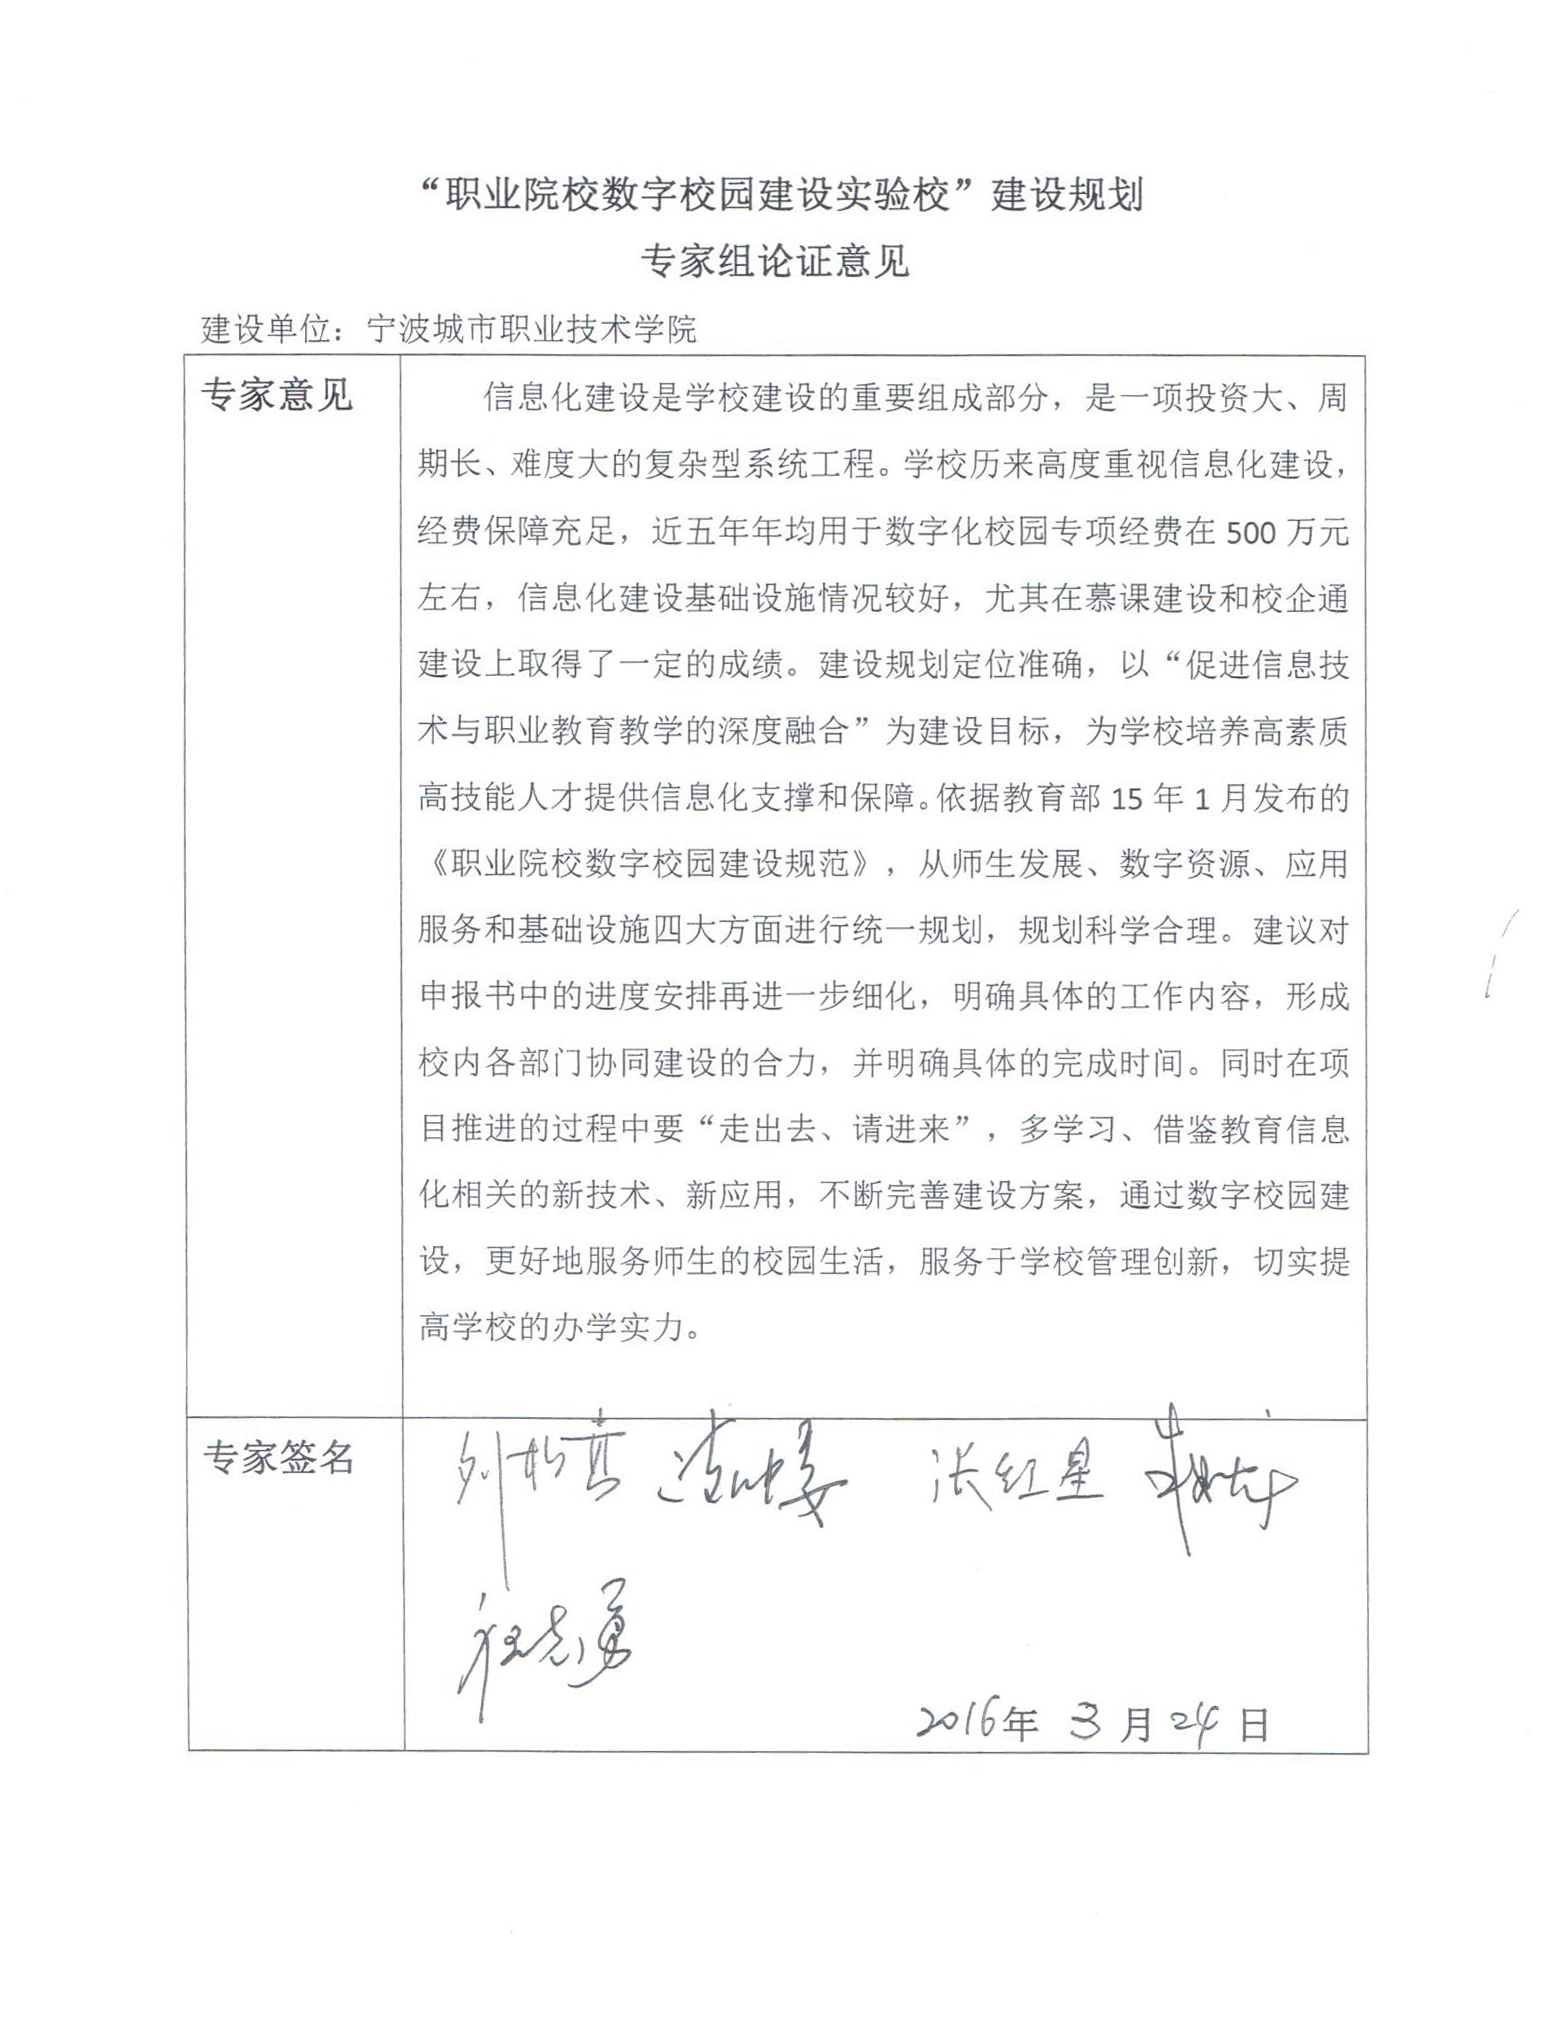 “职业院校数字校园建设实验校”建设规划
专家组论证意见
建设单位：宁波城市职业技术学院
专家意见
信息化建设是学校建设的重要组成部分，是一项投资大、周
期长、难度大的复杂型系统工程。学校历来高度重视信息化建设，
经费保障充足，近五年年均用于数字化校园专项经费在 500 万元
左右，信息化建设基础设施情况较好，尤其在慕课建设和校企通
建设上取得了一定的成绩。建设规划定位准确，以“促进信息技
术与职业教育教学的深度融合”为建设目标，为学校培养高素质
高技能人才提供信息化支撑和保障。依据教育部 15 年 1 月发布的
《职业院校数字校园建设规范》，从师生发展、数字资源、应用
服务和基础设施四大方面进行统一规划，规划科学合理。建议对
申报书中的进度安排再进一步细化，明确具体的工作内容，形成
校内各部门协同建设的合力，并明确具体的完成时间。同时在项
目推进的过程中要“走出去、请进来”，多学习、借鉴教育信息
化相关的新技术、新应用，不断完善建设方案，通过数字校园建
设，更好地服务师生的校园生活，服务于学校管理创新，切实提
高学校的办学实力。
专家签名
张红星
2016年 3 月 24 日